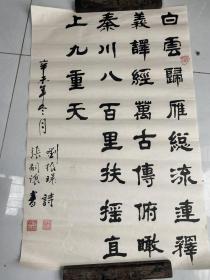 白雲歸雁總流連釋
義譯經萬古傳俯瞰
秦川八百里扶搖直
上九重天
辛未年冬月
劉根琛 詩
書